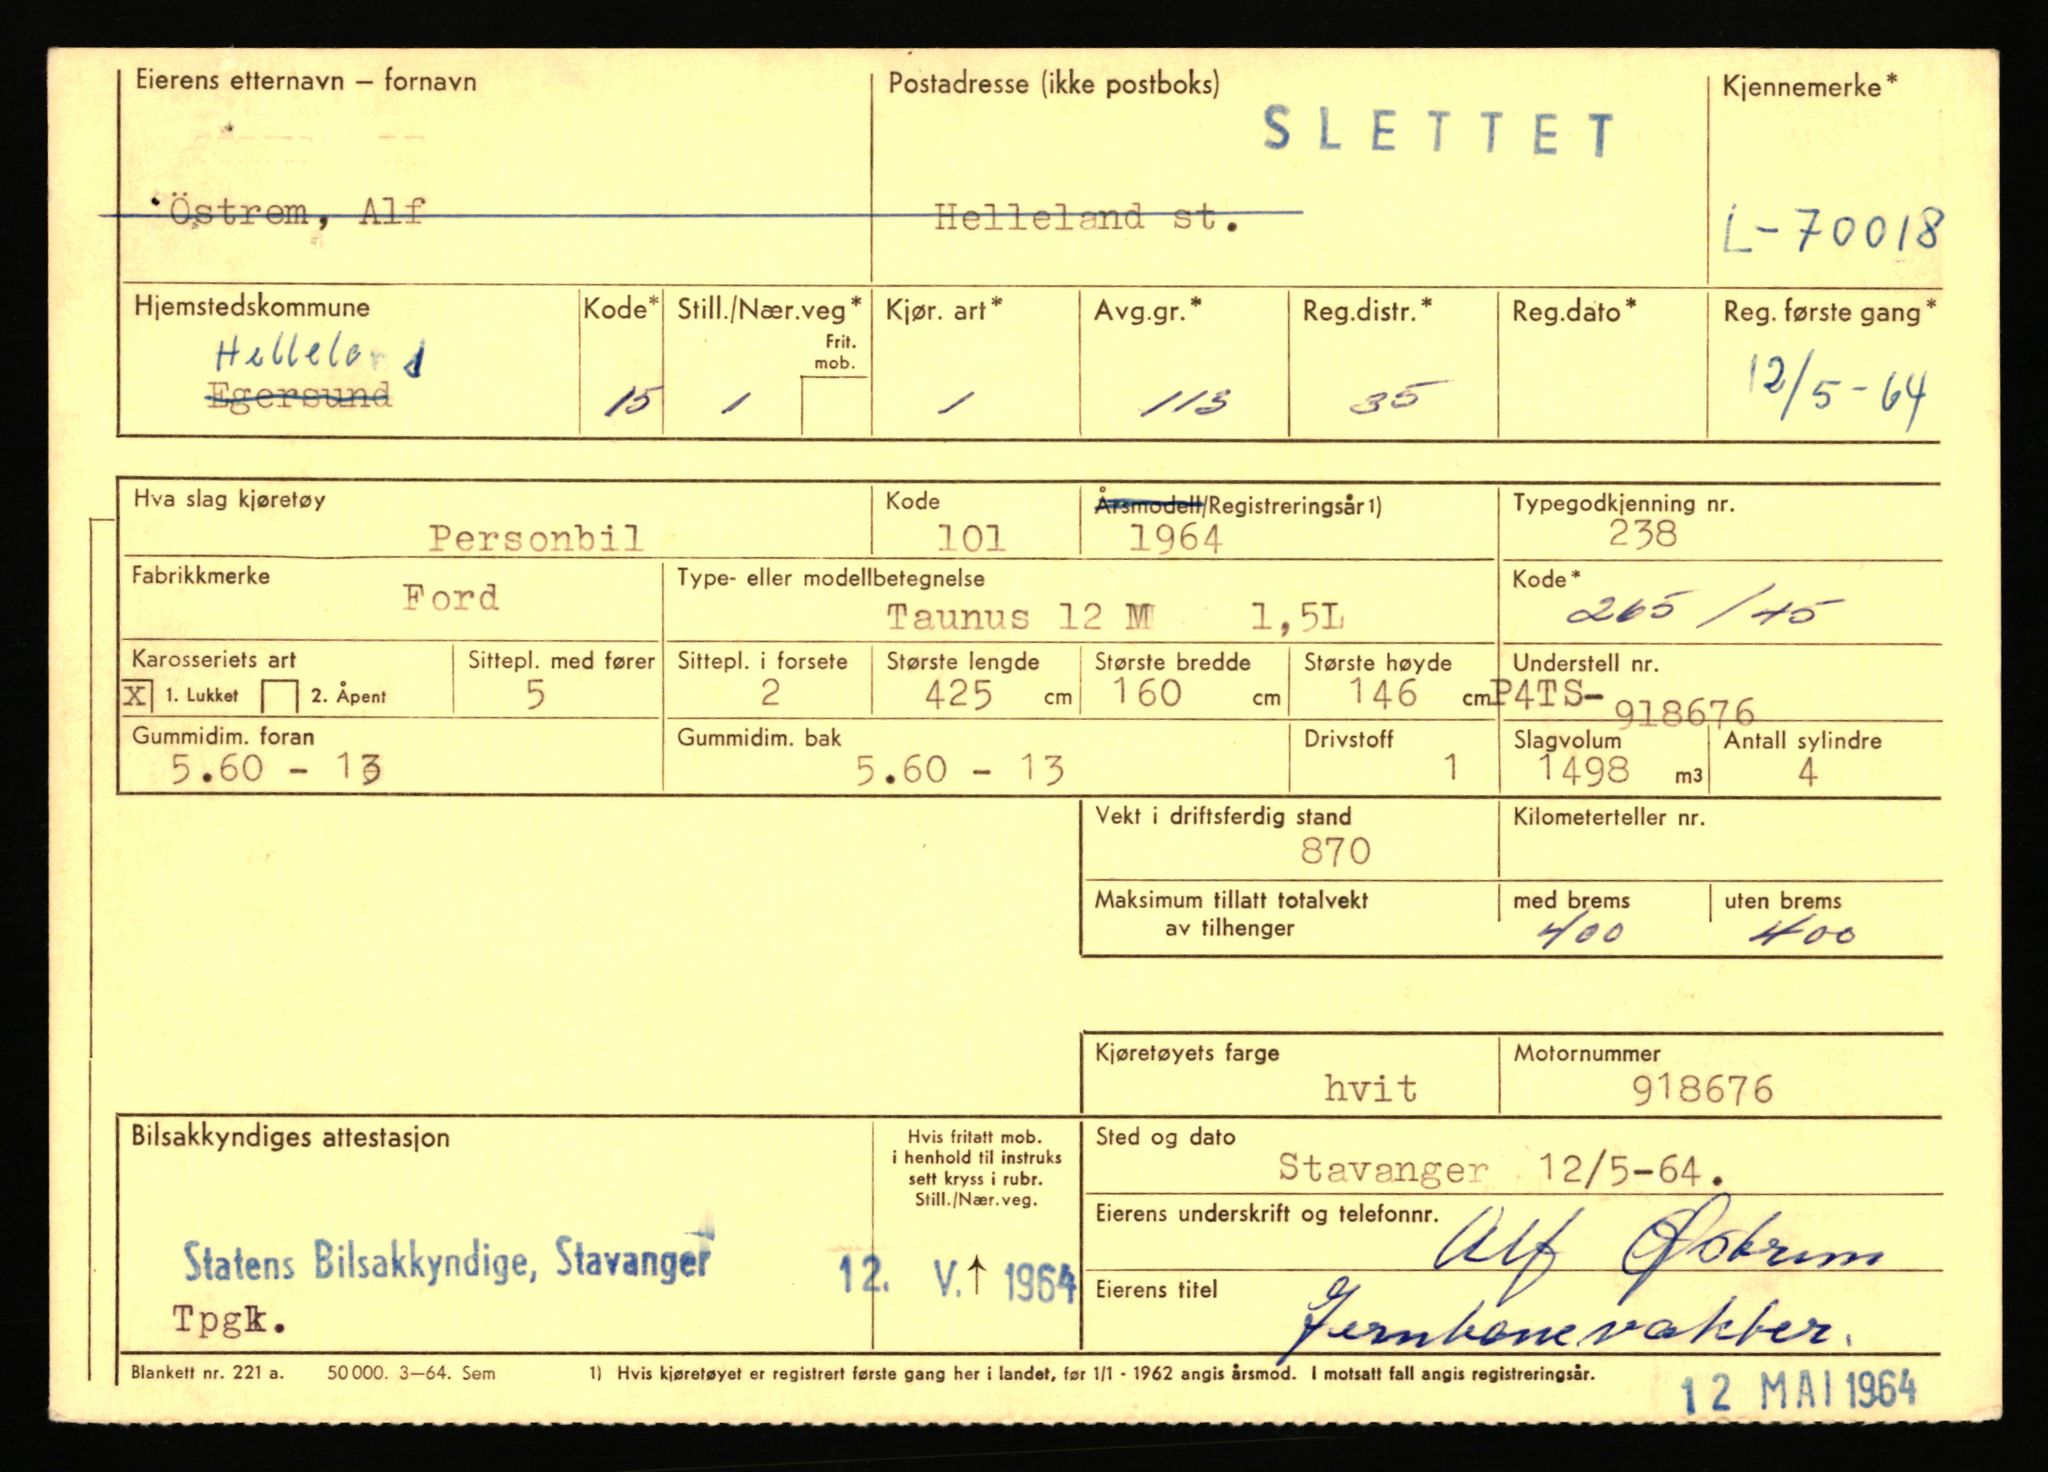 Eierens etternavn – fornavn
Postadresse (ikke postboks)
Kjennemerke*
SLETTET
Östrem, Alf
Helleland st.
L-70018
Hjemstedskommune
Kode*
Still./Nær.veg*
Frit.
mob.
Kjør. art*
Avg.gr.*
Reg.distr.*
Reg.dato*
Reg. første gang*
Helleland
Egersund
15
1
1
113
35
12/5-64
Hva slag kjøretøy
Personbil
Kode
101
Årsmodell/Registreringsår 1)
1964
Typegodkjenning nr.
238
Fabrikkmerke
Ford
Type- eller modellbetegnelse
Taunus 12 M 1,5L
Kode*
265/45
Karosseriets art
X 1. Lukket 2. Åpent
Sittepl. med fører
5
Sittepl. i forsete
2
Største lengde
425 cm
Største bredde
160 cm
Største høyde
146 cm
Understell nr.
P4TS-918676
Gummidim. foran
5.60 - 13
Gummidim. bak
5.60 - 13
Drivstoff
1
Slagvolum
1498 m3
Antall sylindre
4
Vekt i driftsferdig stand
870
Kilometerteller nr.
Maksimum tillatt totalvekt
av tilhenger
med brems
400
uten brems
400
Kjøretøyets farge
hvit
Motornummer
918676
Bilsakkyndiges attestasjon
Hvis fritatt mob.
i henhold til instruks
sett kryss i rubr.
Still./Nær.veg.
Sted og dato
Stavanger 12/5-64.
Eierens underskrift og telefonnr.
Alf Østrem
Statens Bilsakkyndige, Stavanger
12. V.↑ 1964
Tpgk.
Eierens titel
Jernbanevakter.
Blankett nr. 221 a. 50 000. 3–64. Sem
1) Hvis kjøretøyet er registrert første gang her i landet, før 1/1 - 1962 angis årsmod. I motsatt fall angis registreringsår.
12 MAI 1964